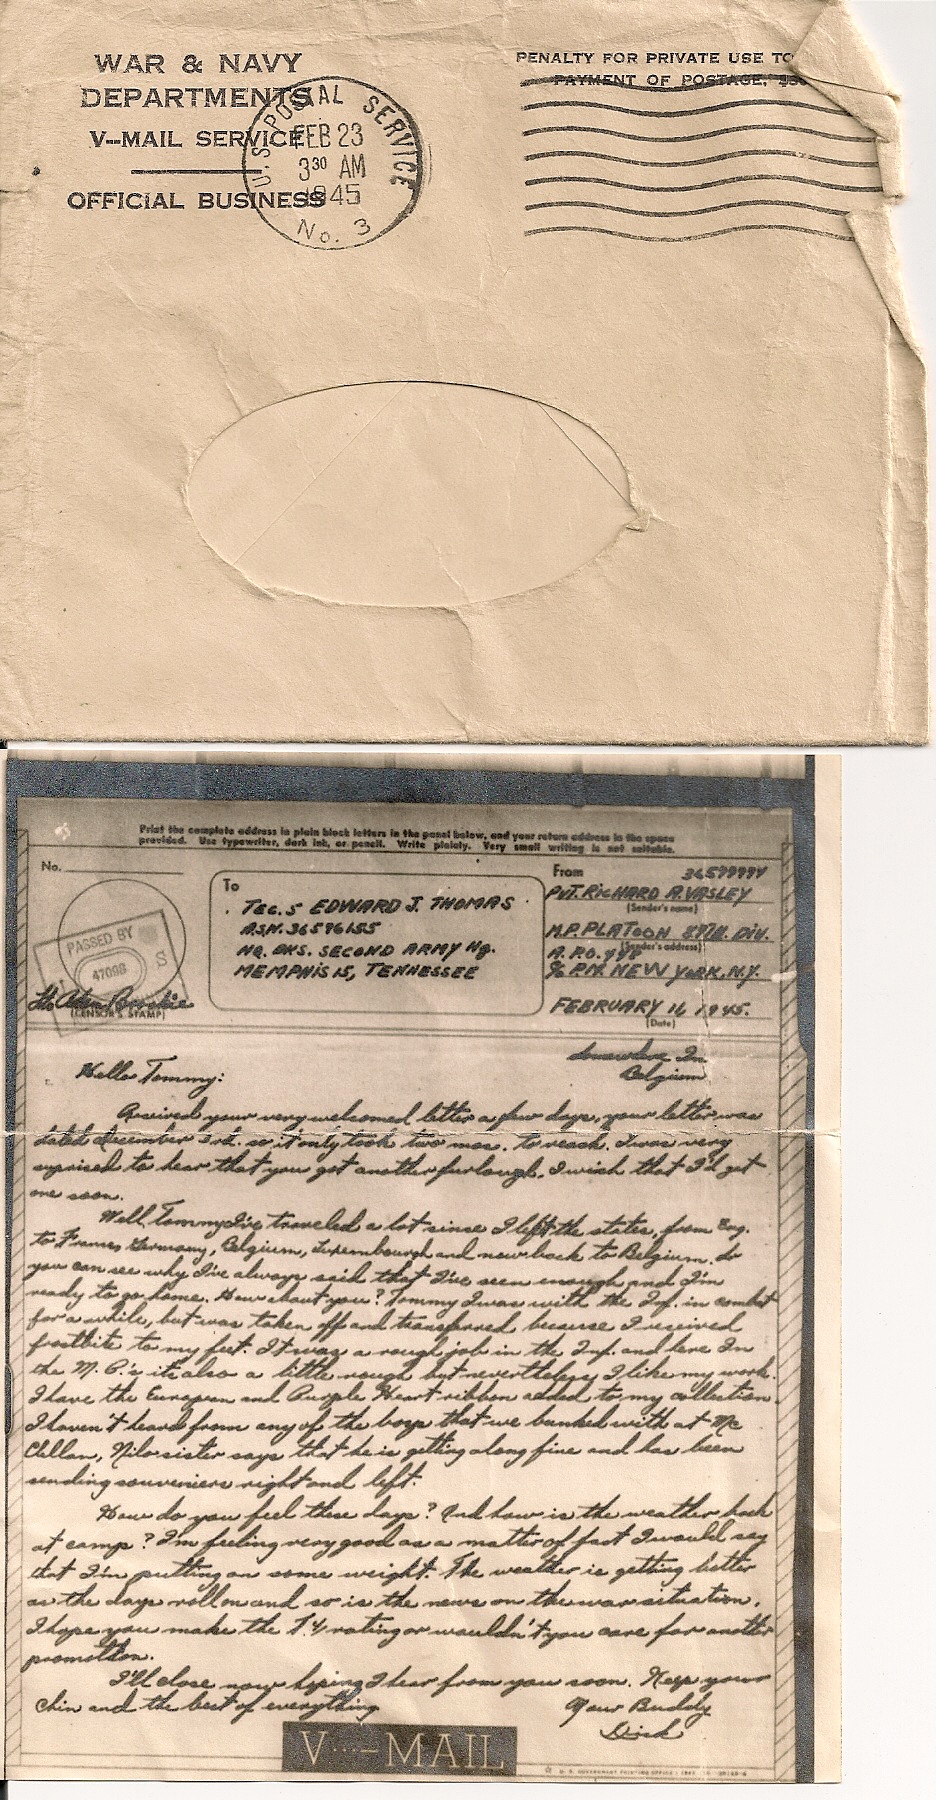 WAR & NAVY
DEPARTMENTS
V--MAIL SERVICE
OFFICIAL BUSINESS
U.S. POSTAL SERVICE
FEB 23
3 30 AM
1945
No. 3
PENALTY FOR PRIVATE USE TO
PAYMENT OF POSTAGE, $30
Print the complete address in plain block letters in the panel below, and your return address in the space
provided. Use typewriter, dark ink, or pencil. Write plainly. Very small writing is not suitable.
No.
PASSED BY
47098
(CENSOR'S STAMP)
To
TEC. 5 EDWARD J. THOMAS
A.S.N. 36596155
HQ. DKS. SECOND ARMY HQ.
MEMPHIS 15, TENNESSEE
From
PVT. RICHARD A. VASLEY
(Sender's name)
M.P. PLATOON 87TH. DIV.
(Sender's address)
A.P.O. 448
% P.M. NEW YORK, N.Y.
FEBRUARY 16 1945.
(Date)
Somewhere In
Belgium
Hello Tommy:
Received your very welcomed letter a few days, your letter was
dated December 3rd. so it only took two mos. to reach. I was very
surprised to hear that you got another furlough. I wish that I'd get
one soon.
Well, Tommy I've traveled a lot since I left the states, from Eng.
to France, Germany, Belgium, Luxembourgh and now back to Belgium. So
you can see why I've always said that I've seen enough and I'm
ready to go home. How about you? Tommy I was with the Inf. in combat
for a while, but was taken off and transferred because I received
frostbite to my feet. It was a rough job in the Inf. and here In
the M.P.'s it also a little rough but nevertheless I like my work.
I have the European and Purple Heart ribbon added to my collection.
I haven't heard from any of the boys that we bunked with at Mc
Clellan, Nilo sister says that he is getting along fine and has been
sending souveniers right and left.
How do you feel these days? And how is the weather back
at camp? I'm feeling very good as a matter of fact I would say
that I'm putting on some weight. The weather is getting better
as the days roll on and so is the news on the war situation.
I hope you make the T.4 rating or wouldn't you care for another
promotion.
I'll close now hoping I hear from you soon. Keep your
chin and the best of everything
Your Buddy
Dick
V···—MAIL
U. S. GOVERNMENT PRINTING OFFICE